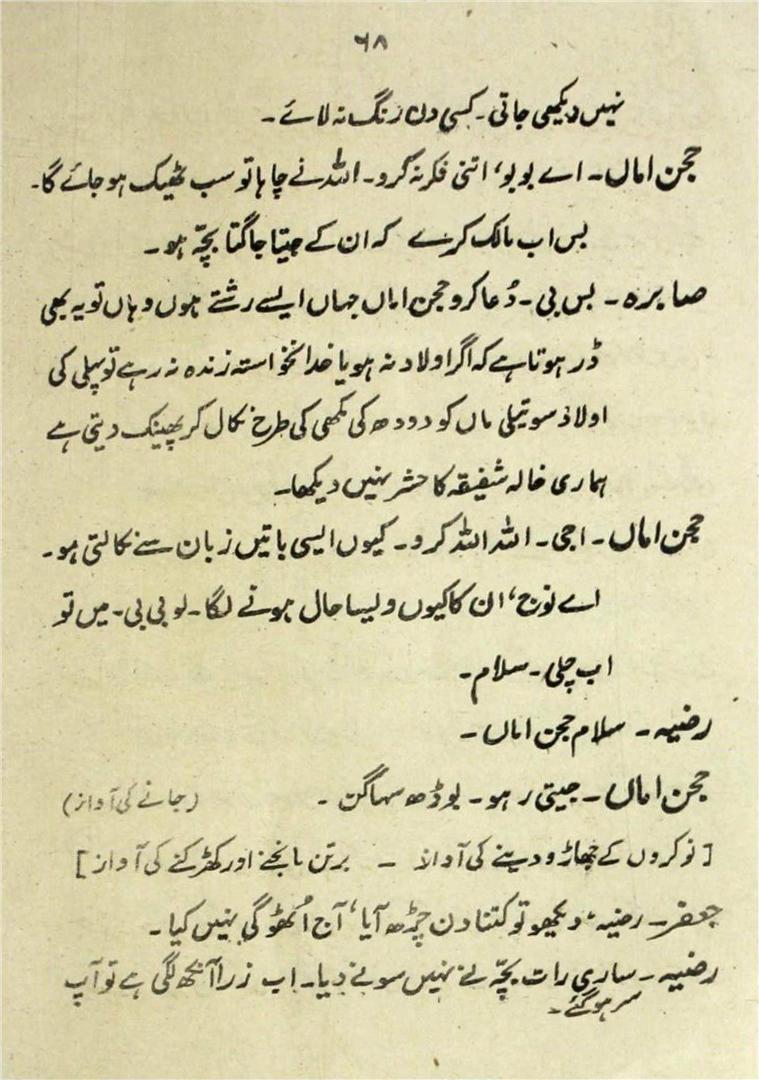 ۶۸
نہیں دیکھی جاتی۔ کسی دن رنگ نہ لائے۔
حجن اماں۔ اے بوبو، اتنی فکر نہ کرو۔ اللہ نے چاہا تو سب ٹھیک ہو جائے گا۔
بس اب مالک کرے کہ ان کے جیتا جاگتا بچّہ ہو۔
صابرہ۔ بس بی۔ دُعا کرو حجن اماں جہاں ایسے رشتے ہوں وہاں تو یہ بھی
ڈر ہوتا ہے کہ اگر اولاد نہ ہو یا خدانخواستہ زندہ نہ رہے تو پہلی کی
اولاد سوتیلی ماں کو دودھ کی مکھی کی طرح نکال کر پھینک دیتی ہے
ہماری خالہ شفیقہ کا حشر نہیں دیکھا۔
حجن اماں۔ اجی۔ اللہ اللہ کرو۔ کیوں ایسی باتیں زبان سے نکالتی ہو۔
اے نوج، ان کا کیوں ویسا حال ہونے لگا۔ لو بی بی۔ میں تو
اب چلی۔ سلام۔
رضیہ۔ سلام حجن اماں۔
حجن اماں۔ جیتی رہو۔ بوڑھ سہاگن۔ (جانے کی آواز)
[نوکروں کے جھاڑو دینے کی آواز ۔ برتن مانجنے اور کھڑکنے کی آواز]
جعفر۔ رضیہ، دیکھو تو کتنا دن چڑھ آیا، آج اُٹھو گی نہیں کیا۔
رضیہ۔ ساری رات بچّہ نے نہیں سونے دیا۔ اب ذرا آنکھ لگی ہے تو آپ
سر ہو گئے۔